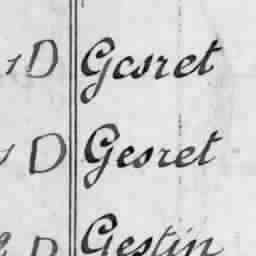 1 D Gesret
1 D Gesret
D Gestin